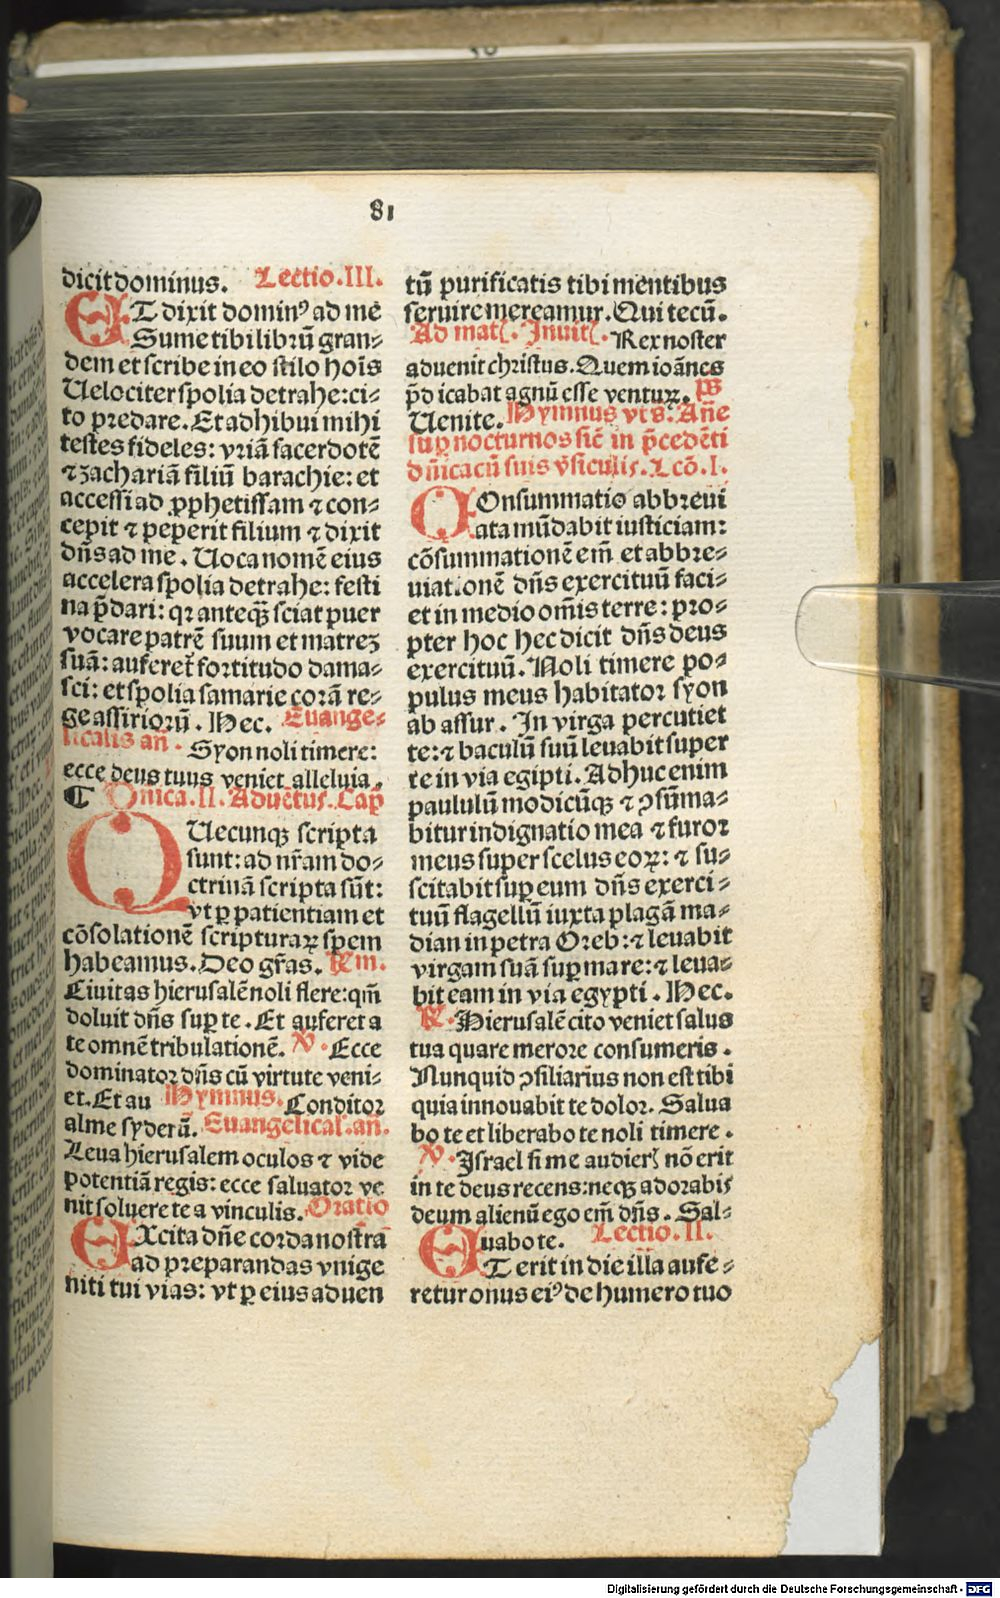 81
dicit dominus. Lectio.III.
ET dixit dominꝰ ad me
Sume tibi librū gran⸗
dem et scribe in eo stilo hoīs
Uelociter spolia detrahe:ci⸗
to predare. Et adhibui mihi
testes fideles: vriā sacerdotē
⁊ zachariā filiū barachie: et
accessi ad ꝓphetissam ⁊ con⸗
cepit ⁊ peperit filium ⁊ dixit
dn̄s ad me. Uoca nomē eius
accelera spolia detrahe: festi
na p̄dari: qꝛ anteqꝫ̄ sciat puer
vocare patrē suum et matreꝫ
suā: auferet᷑ fortitudo dama⸗
sci: et spolia samarie corā re⸗
ge assiriorū. Hec. Euange⸗
licalis an̄. Syon noli timere:
ecce deus tuus veniet alleluia.
¶ Dnica.II. Aduētus. Cap̄
QUecunqꝫ scripta
sunt: ad nr̄am do⸗
ctrinā scripta sūt:
vt ꝑ patientiam et
cōsolationē scripturaꝝ spem
habeamus. Deo gr̄as. Rm.
Ciuitas hierusalē noli flere:qm̄
doluit dn̄s suꝑ te. Et auferet a
te omnē tribulationē. ℣. Ecce
dominator dn̄s cū virtute veni⸗
et. Et au Hymnus. Conditor
alme syderū. Euangelical.an̄.
Leua hierusalem oculos ⁊ vide
potentiā regis: ecce saluator ve
nit soluere te a vinculis. Oratio
EXcita dn̄e corda nostra
ad preparandas vnige
niti tui vias: vt ꝑ eius aduen
tū purificatis tibi mentibus
seruire mereamur. Qui tecū.
Ad matꝭ. Inuitꝭ. Rex noster
aduenit christus. Quem ioānes
p̄dicabat agnū esse venturꝝ. ps
Uenite. Hymnus vts. An̄e
suꝑ nocturnos sic̄ in p̄cedēti
dn̄ica cū suis v̄siculis. Lcō.I.
COnsummatio abbreui
ata mūdabit iusticiam:
cōsummationē em̄ et abbre⸗
uiationē dn̄s exercituū faci⸗
et in medio om̄is terre: pro⸗
pter hoc hec dicit dn̄s deus
exercituū. Noli timere po⸗
pulus meus habitator syon
ab assur. In virga percutiet
te: ⁊ baculū suū leuabit super
te in via egipti. Adhuc enim
paululū modicūqꝫ ⁊ ꝯsūma⸗
bitur indignatio mea ⁊ furor
meus super scelus eoꝝ: ⁊ su⸗
scitabit suꝑ eum dn̄s exerci⸗
tuū flagellū iuxta plagā ma⸗
dian in petra Oreb: ⁊ leuabit
virgam suā suꝑ mare: ⁊ leua⸗
bit eam in via egypti. Hec.
℟. Hierusalē cito veniet salus
tua quare merore consumeris.
Nunquid ꝯsiliarius non est tibi
quia innouabit te dolor. Salua
bo te et liberabo te noli timere.
℣. Israel si me audierꝭ nō erit
in te deus recens:neqꝫ adorabis
deum alienū ego em̄ dn̄s. Sal⸗
uabo te. Lectio.II.
ET erit in die illa aufe⸗
retur onus eiꝰ de humero tuo
Digitalisierung gefördert durch die Deutsche Forschungsgemeinschaft - DFG